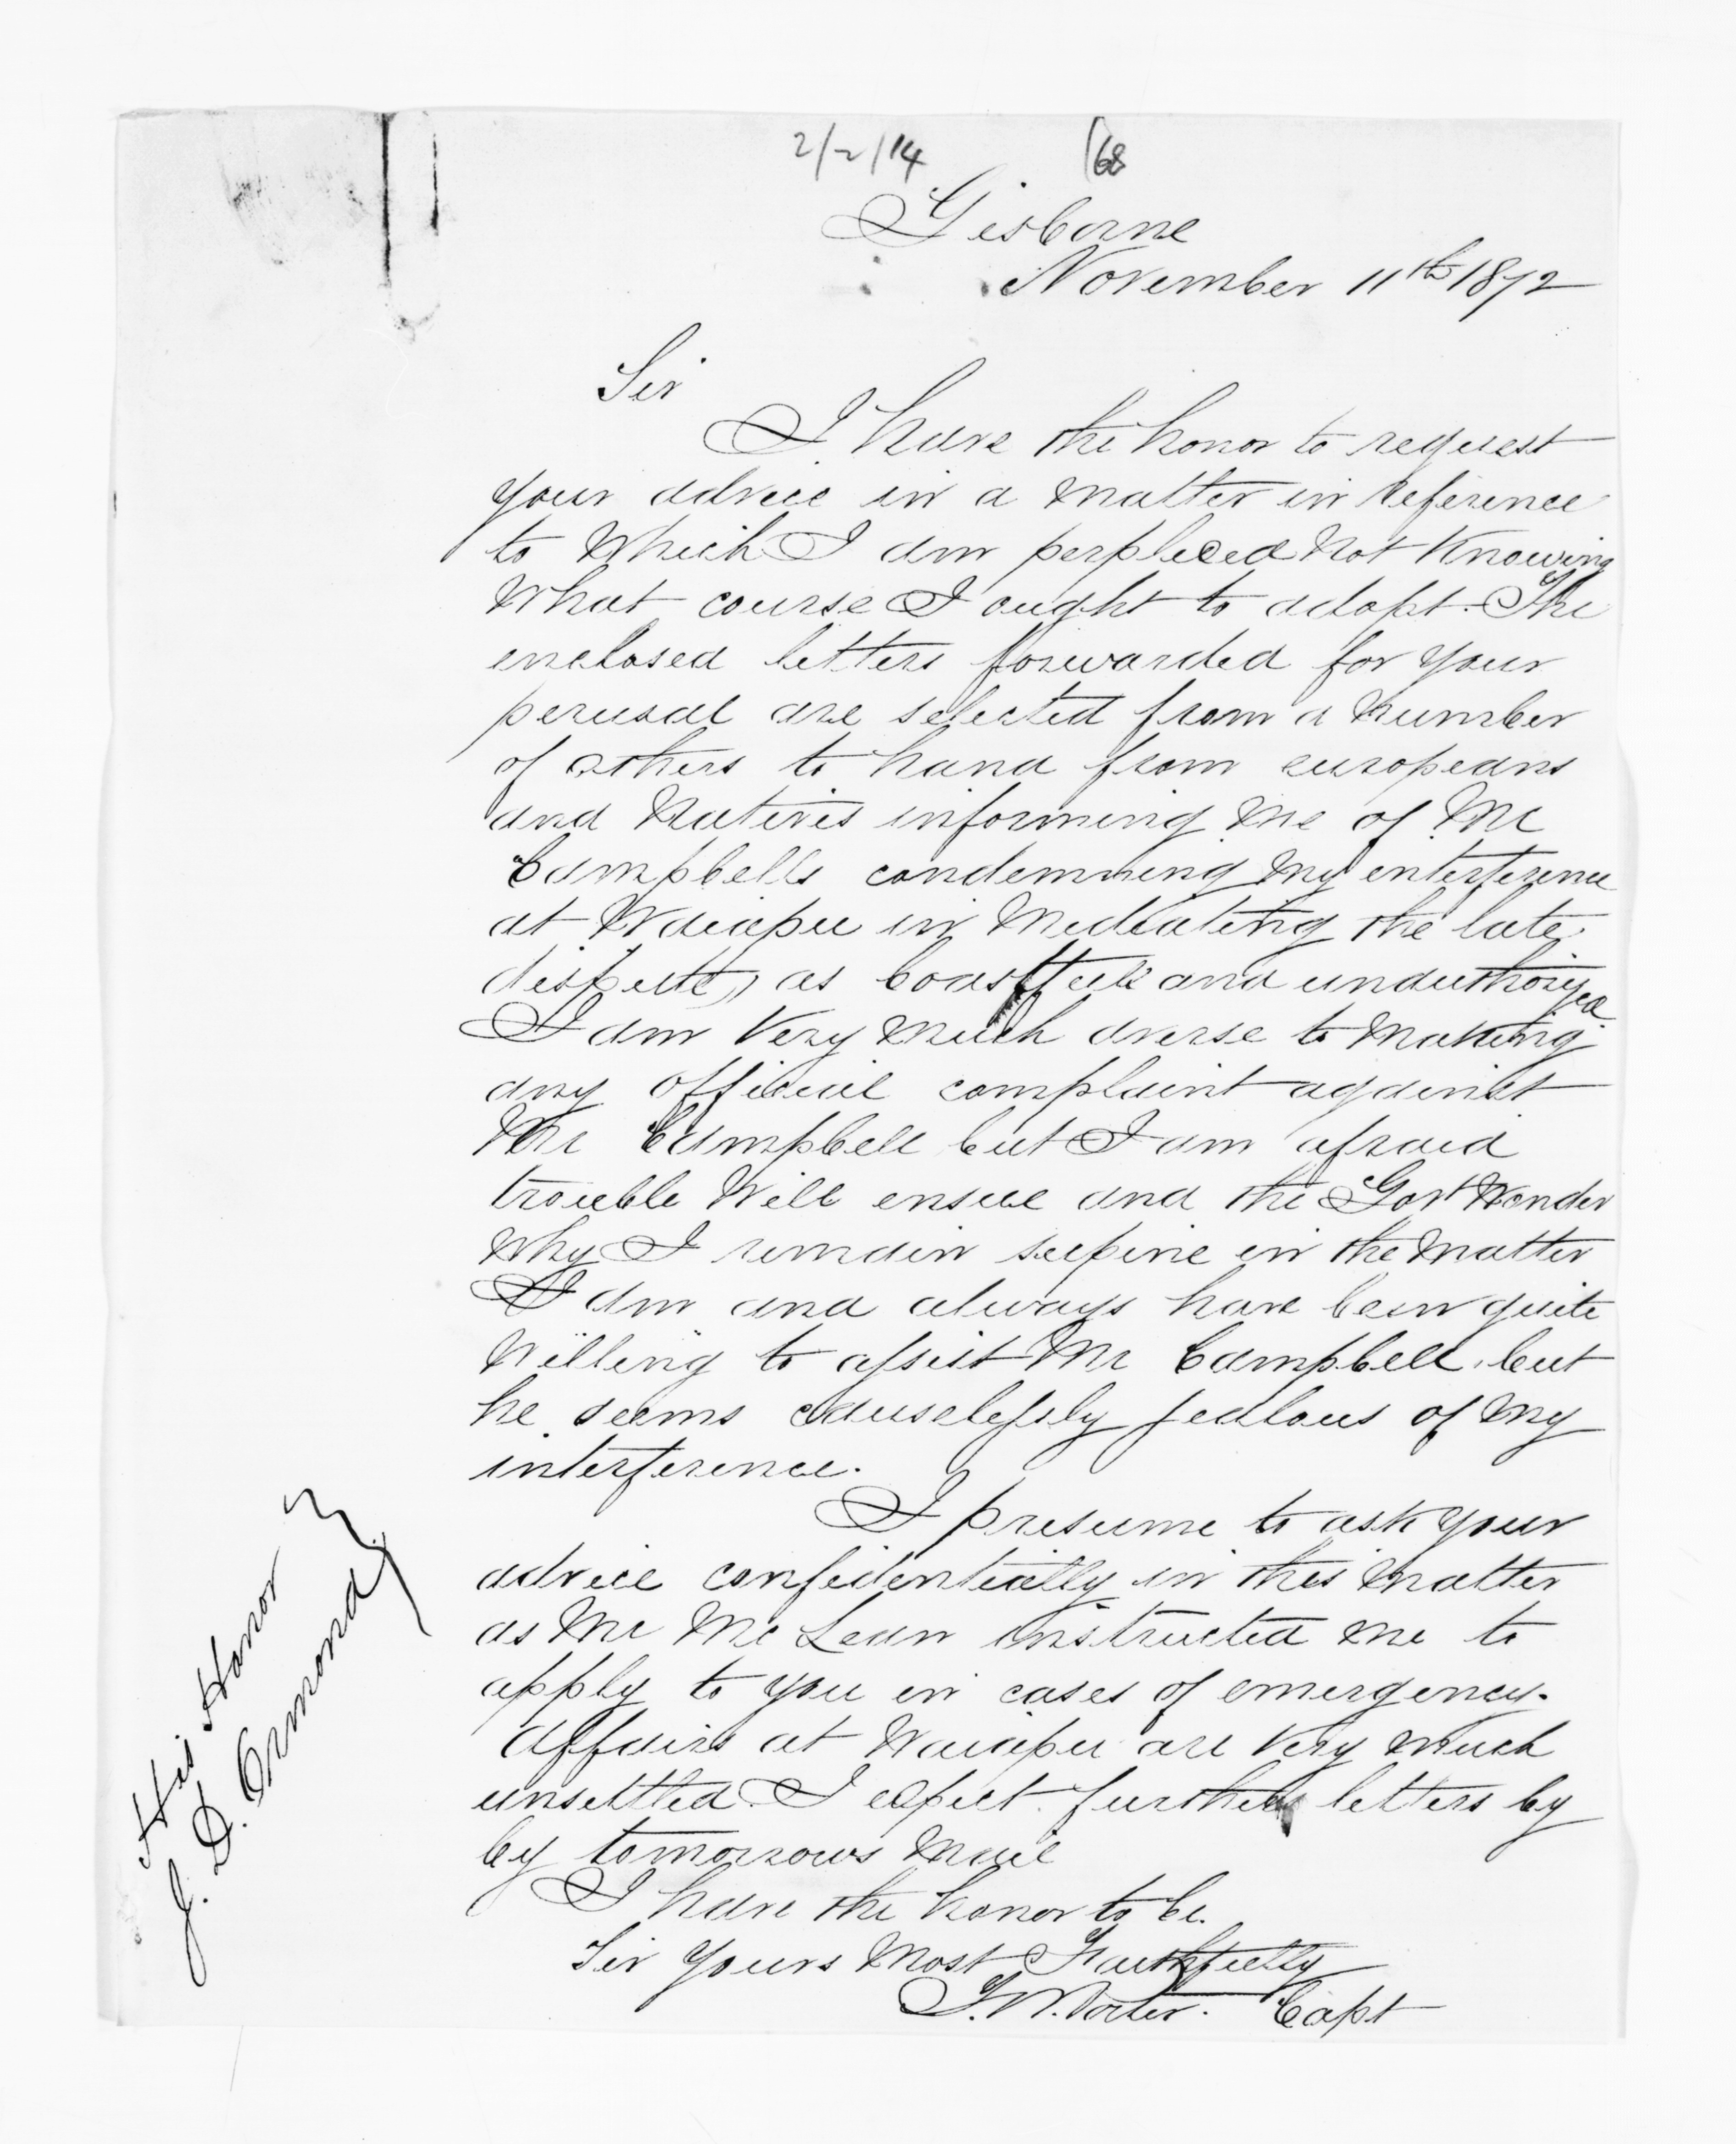 2/2/14 (68
Gisborne
November 11th 1872
Sir
I have the honor to request
your advice in a matter in reference
to which I am perplexed not knowing
what course I ought to adopt. The
enclosed letters forwarded for your
perusal are selected from a number
of others to hand from europeans
and Natives informing me of Mr
Campbells condemning my interference
at Waiapu in Mediating the late
dispute, as boastful and unauthorized
I am very much averse to making
any official complaint against
Mr Campbell but I am afraid
trouble will ensue and the Govt wonder
why I remain supine in the matter
I am and always have been quite
willing to assist Mr Campbell, but
he seems causelessly jealous of my
interference.
I presume to ask your
advice confidentially in this matter
as Mr McLean instructed me to
apply to you in cases of emergency.
Affairs at Waiapu are very much
unsettled. I expect further letters by
by tomorrows mail
I have the honor to be.
Sir yours most Faithfully
T.W. Porter. Capt
His Honor
J. D. Ormond